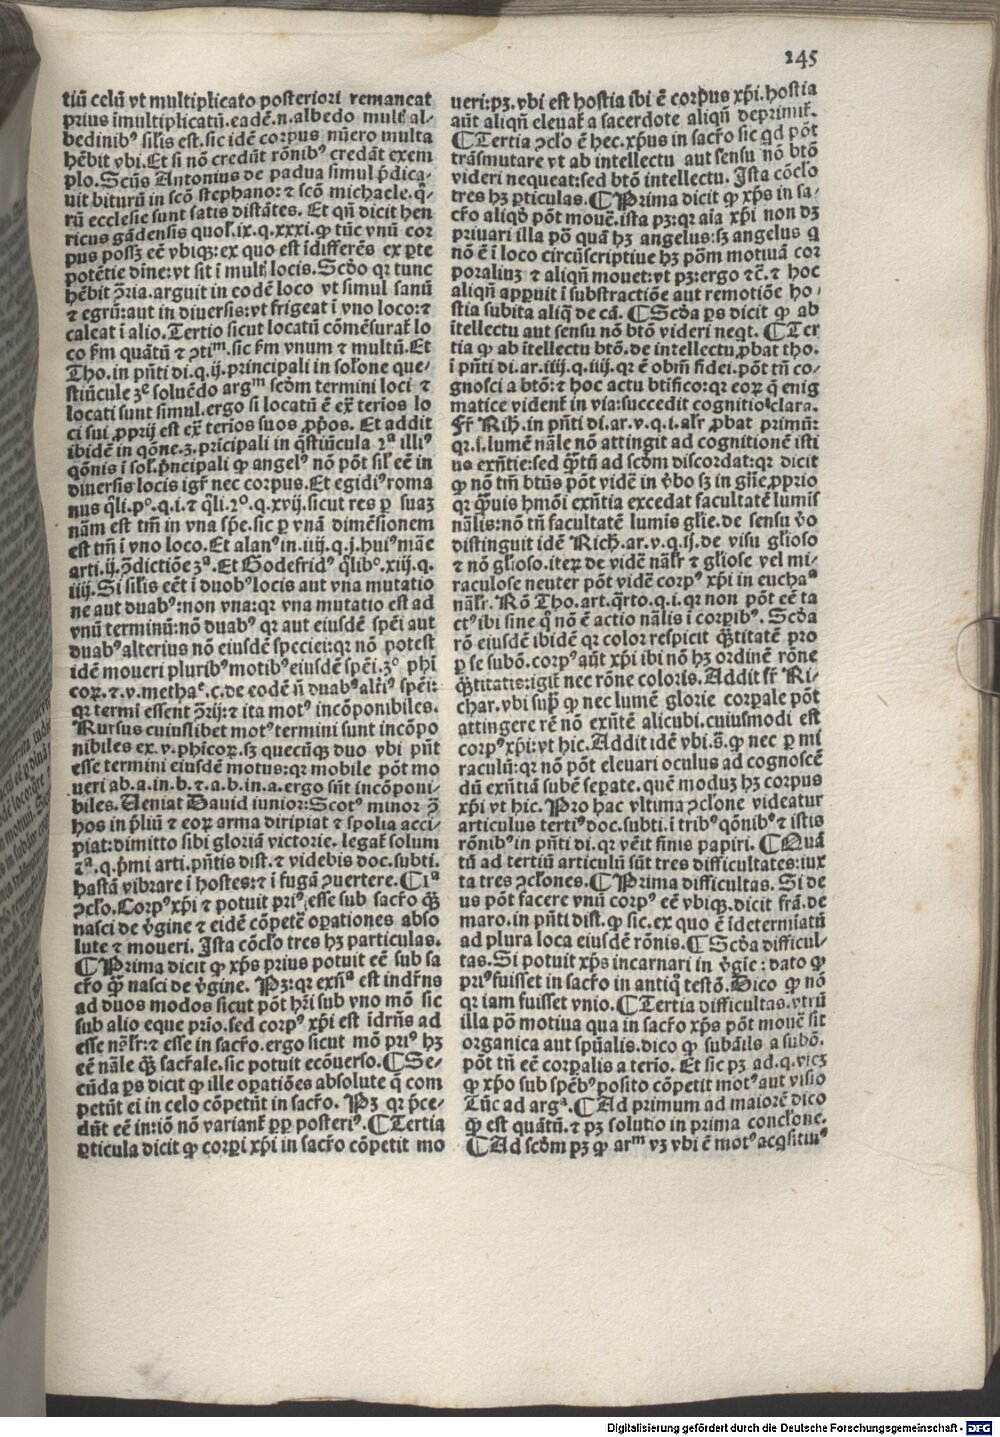 245
tiū celū vt multiplicato posteriori remaneat
prius īmultiplicatū.eadē.n.albedo multꝭ al-
bedinibꝰ silis est.sic idē corpus nūero multa
hēbit vbi.Et si nō credūt rōnibꝰ credāt exem
plo.Scūs Antonius de padua simul p̄dica-
uit biturū in scō stephano: ⁊ scō michaele.q̄-
rū ecclesie sunt satis distātes. Et qn̄ dicit hen
ricus gādensis quol.ix.q.xxxi.ꝙ tūc vnū cor
pus possꝫ eē vbiqꝫ: ex quo est īdifferēs ex ꝑte
potētie dīne: vt sit ī multꝭ locis. Scḋo qꝛ tunc
hēbit ꝯ̄ria.arguit in eodē loco vt simul sanū
⁊ egrū:aut in diuersis:vt frigeat ī vno loco:⁊
caleat ī alio.Tertio sicut locatū cōmēsurat̄ lo
co ẜm quātū ⁊ ꝯtiᵐ.sic ẜm vnum ⁊ multū.Et
Tho.in pn̄ti di.q.ij.principali in solone que-
stiūcule 3ᵉ soluēdo argᵐ scd̄m termini loci ⁊
locati sunt simul.ergo si locatū ē ex̄ terios lo
ci sui ꝓprij est ex̄ terios suos ꝓp̄os. Et addit
ibidē in qōne.3.prīcipali in q̄stiūcula 2ᵃ illiꝰ
qōnis ī sol.p̄ncipali ꝙ angelꝰ nō pōt sil eē in
diuersis locis igr̄ nec corpus.Et egidiꝰ roma
nus q̄li.pᵒ.q.i.⁊ q̄li.2ᵒ.q.xvij.sicut res ꝑ suaꝫ
nām est tm̄ in vna sp̄e.sic ꝑ vnā dimēsionem
est tm̄ ī vno loco.Et alanꝰ in.iiij.q.j.huiꝰmāe
arti.ij.ꝯ̄dictiōe 3ᵃ.Et Godefridꝰ q̄libᵉ.xiij.q.
iiij.Si silis eēt ī duobꝰ locis aut vna mutatio
ne aut duabꝰ:non vna:qꝛ vna mutatio est ad
vnū terminū:nō duabꝰ qꝛ aut eiusdē spēi aut
duabꝰ alterius nō eiusdē speciei:qꝛ nō potest
idē moueri pluribꝰ motibꝰ eiusdē spēi.3ᵒ phī
coꝝ.⁊.v.methaᵉ.c.de eodē n̄ duabꝰ alt̄iꝰ spēi:
qꝛ termī essent ꝯ̄rij:⁊ ita motꝰ incōponibiles.
Rursus cuiuslibet motꝰ termini sunt incōpo
nibiles ex.v.phīcoꝝ.sꝫ quecūqꝫ duo vbi pn̄t
esse termini eiusdē motus:qꝛ mobile pōt mo
ueri ab.a.in.b.⁊.a.b.in.a.ergo sūt incōponi-
biles.Veniat Dauid iunior:Scotꝰ minor ꝯ̄
hos in p̄liū ⁊ eoꝝ arma diripiat ⁊ spolia acci-
piat:dimitto sibi gloriā victorie. legat̄ solum
2ᵃ.q.p̄mi arti.pn̄tis dist.⁊ videbis doc.subti.
hastā vibrare ī hostes:⁊ ī fugā ꝯuertere.¶1ᵃ
ꝯclo.Corpꝰ xp̄i ⁊ potuit priꝰ esse sub sacr̄o q̄ꝫ
nasci de v̄gine ⁊ eidē cōpetē oꝑationes abso
lute ⁊ moueri. Ista cōclo tres hꝫ particulas.
¶Prima dicit ꝙ xp̄s prius potuit eē sub sa
cr̄o q̄ꝫ nasci de v̄gine. Pꝫ:qꝛ exn̄ᵃ est indr̄ns
ad duos modos sicut pōt hr̄i sub vno mō sic
sub alio eque prio.sed corpꝰ xp̄i est idr̄ns ad
esse nāle:⁊ esse in sacr̄o.ergo sicut mō priꝰ hꝫ
eē nāle q̄ꝫ sacr̄ale.sic potuit ecōuerso.¶Se-
cūda ꝑs dicit ꝙ ille oꝑatiōes absolute q̄ com
petūt ei in celo cōpetūt in sacr̄o. Pꝫ qꝛ p̄ce-
dūt eē in:iō nō variant̄ ꝓp̄ posteriꝰ.¶Tertia
ꝑticula dicit ꝙ corꝑi xp̄i in sacr̄o cōpetit mo
ueri:pꝫ.vbi est hostia ibi ē corpus xp̄i.hostia
aūt aliqn̄ eleuat̄ a sacerdote aliqn̄ deprimit̄.
¶Tertia ꝯclo ē hec.xp̄us in sacr̄o sic qd̄ pōt
trāsmutare vt ab intellectu aut sensu nō btō
videri nequeat:sed btō intellectu. Ista cōclo
tres hꝫ ꝑticulas.¶Prima dicit ꝙ xp̄s in sa-
cr̄o aliqd̄ pōt mouē.ista pꝫ:qꝛ aīa xp̄i non dꝫ
priuari illa pō quā hꝫ angelus:sꝫ angelus q
nō ē ī loco circūscriptiue hꝫ pōm motiuā cor
poraliuꝫ ⁊ aliqn̄ mouet:vt pꝫ:ergo ⁊c̄.⁊ hoc
aliqn̄ apꝑuit ī substractiōe aut remotiōe ho-
stia subita aliq̄ de cā. ¶Scḋa ꝑs dicit ꝙ ab
ītellectu aut sensu nō btō videri neqt. ¶Ter
tia ꝙ ab ītellectu btō.de intellectu ꝓbat tho.
ī pn̄ti di.ar.iiij.q.iiij.qꝛ ē obm̄ fidei.pōt tn̄ co-
gnosci a btō:⁊ hoc actu btifico:qꝛ eoꝝ q̄ enig
matice vident̄ in via:succedit cognitio clara.
Fr̄ Rih̄.in pn̄ti di.ar.v.q.i.alr̄ ꝓbat primū:
qꝛ.s.lumē nāle nō attingit ad cognitionē isti
us exn̄tie:sed q̄tū ad scd̄m discordat:qꝛ dicit
ꝙ nō tm̄ btūs pōt vidē in v̄bo sꝫ in gn̄e ꝓprio
qꝛ q̄ꝫuis hmōi exn̄tia excedat facultatē lumīs
nālis:nō tn̄ facultatē lumīs gl̄ie.de sensu v̄o
distinguit idē Rich.ar.v.q.ij.de visu gl̄ioso
⁊ nō gl̄ioso.iteꝝ de vidē nālr̄ ⁊ gl̄iose vel mi-
raculose neuter pōt vidē corpꝰ xp̄i in euchaᵃ
nālr̄. Rō Tho.art.q̄rto.q.i.qꝛ non pōt eē ta
ctꝰ ibi sine q̄ nō ē actio nālis ī corꝑibꝰ. Scḋa
rō eiusdē ibidē qꝛ color respicit q̄titatē pro
ꝑ se subō.corpꝰ aūt xp̄i ibi nō hꝫ ordinē rōne
q̄titatis:igit̄ nec rōne coloris.Addit fr̄ Ri-
char.vbi sup̄ ꝙ nec lumē glorie corpale pōt
attingere rē nō exn̄tē alicubi.cuiusmodi est
corpꝰ xp̄i:vt hic.Addit idē vbi.s̄.ꝙ nec ꝑ mi
raculū:qꝛ nō pōt eleuari oculus ad cognoscē
dū exn̄tiā subē seꝑate.quē moduꝫ hꝫ corpus
xp̄i vt hic. Pro hac vltima ꝯclone videatur
articulus tertiꝰ doc.subti.ī tribꝰ qōnibꝰ ⁊ istis
rōnibꝰ in pn̄ti di.qꝛ vēit finis papiri. ¶Quā
tū ad tertiū articulū sūt tres difficultates:iux
ta tres ꝯclones.¶Prima difficultas. Si de
us pōt facere vnū corpꝰ eē vbiqꝫ.dicit frā.de
maro.in pn̄ti dist.ꝙ sic.ex quo ē īdetermiatū
ad plura loca eiusdē rōnis.¶Scḋa difficul-
tas.Si potuit xp̄s incarnari in v̄gie:dato ꝙ
priꝰ fuisset in sacr̄o in antiq̄ testō.Dico ꝙ nō
qꝛ iam fuisset vnio.¶Tertia difficultas.vtrū
illa pō motiua qua in sacr̄o xp̄s pōt mouē sit
organica aut spūalis.dico ꝙ subālis a subō.
pōt tn̄ eē corꝑalis a terio. Et sic pꝫ ad.q.viꝫ
ꝙ xp̄o sub speb̄ꝰ posito cōpetit motꝰ aut visio
Tūc ad argᵃ.¶Ad primum ad maiorē dico
ꝙ est quātū.⁊ pꝫ solutio in prima conclone.
¶Ad scd̄m pꝫ ꝙ arᵐ vꝫ vbi ē motꝰ acq̄sitiuꝰ
Digitalisierung gefördert durch die Deutsche Forschungsgemeinschaft - DFG